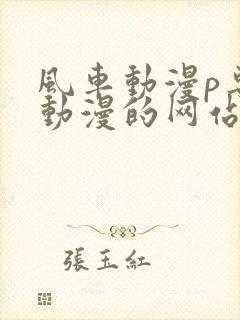 風車動漫p
動漫的网站
張玉紅